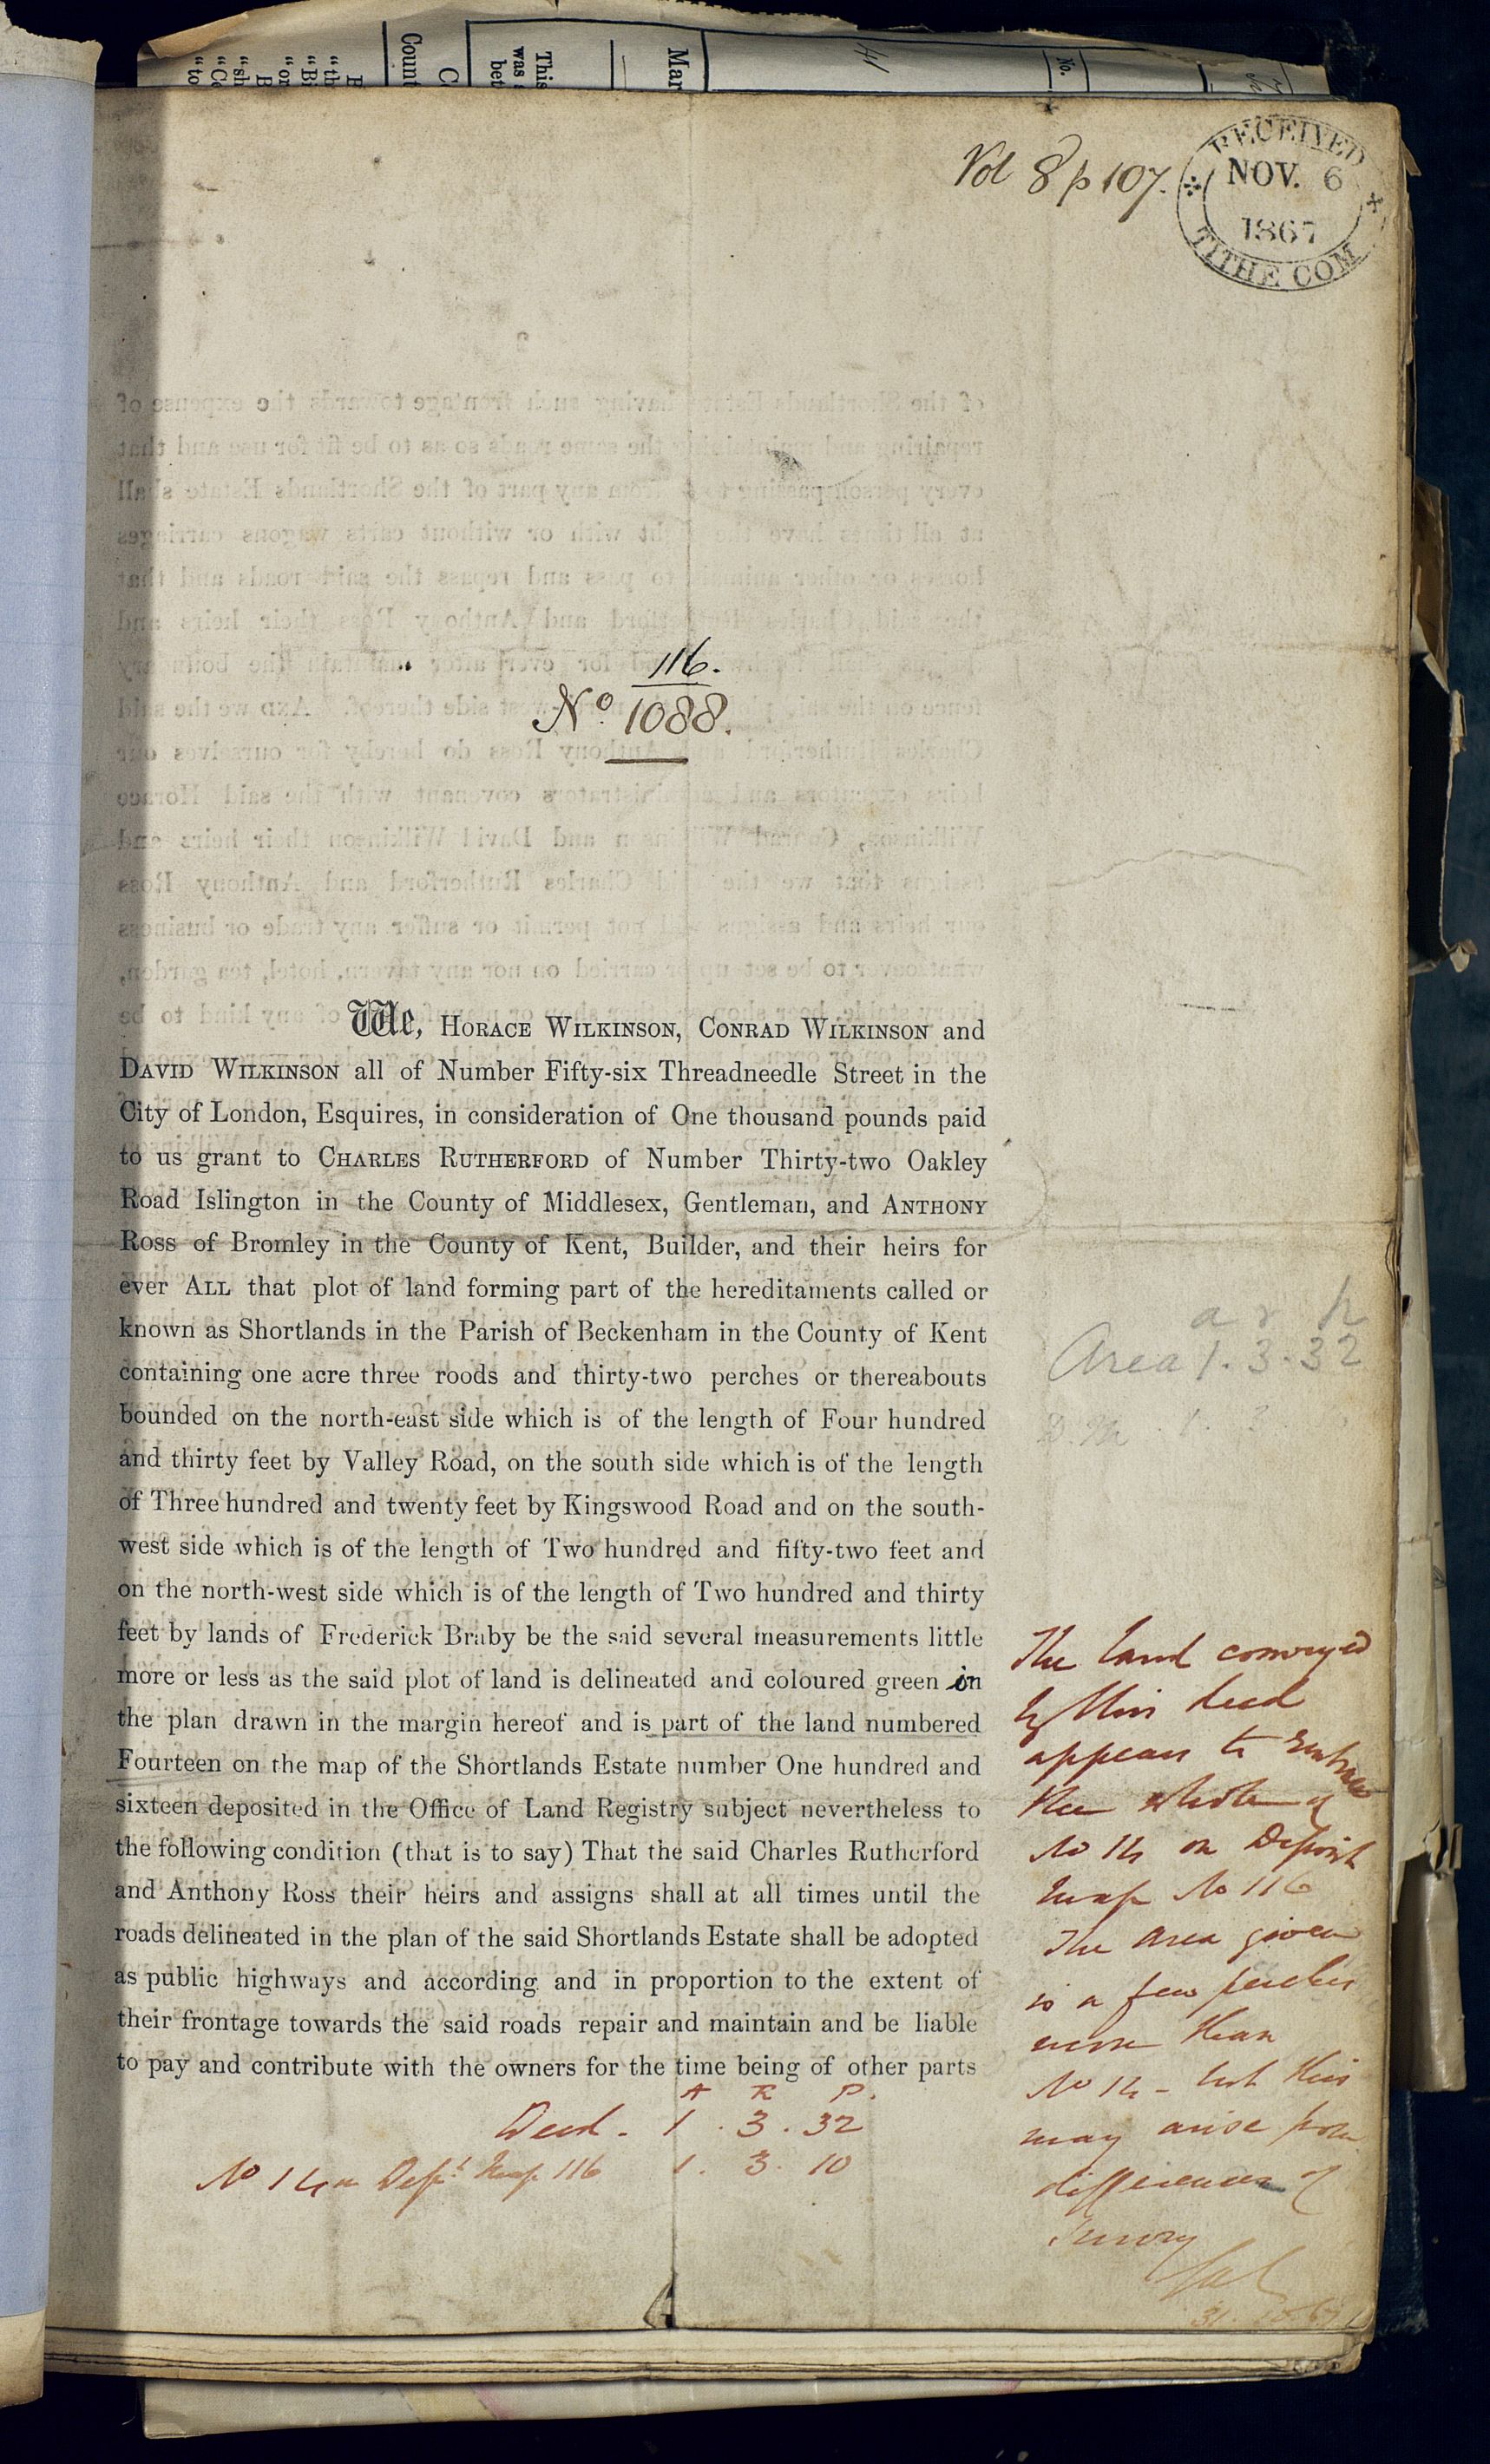 Mar
This
was
bet
Count
No.
Vol 8 p 107.
RECEIVED
NOV. 6
1867
TITHE COM
116.
No. 1088.
We, HORACE WILKINSON, CONRAD WILKINSON and
DAVID WILKINSON all of Number Fifty-six Threadneedle Street in the
City of London, Esquires, in consideration of One thousand pounds paid
to us grant to CHARLES RUTHERFORD of Number Thirty-two Oakley
Road Islington in the County of Middlesex, Gentleman, and ANTHONY
ROSS of Bromley in the County of Kent, Builder, and their heirs for
ever ALL that plot of land forming part of the hereditaments called or
known as Shortlands in the Parish of Beckenham in the County of Kent
containing one acre three roods and thirty-two perches or thereabouts
bounded on the north-east side which is of the length of Four hundred
and thirty feet by Valley Road, on the south side which is of the length
of Three hundred and twenty feet by Kingswood Road and on the south-
west side which is of the length of Two hundred and fifty-two feet and
on the north-west side which is of the length of Two hundred and thirty
feet by lands of Frederick Braby be the said several measurements little
more or less as the said plot of land is delineated and coloured green in
the plan drawn in the margin hereof and is part of the land numbered
Fourteen on the map of the Shortlands Estate number One hundred and
sixteen deposited in the Office of Land Registry subject nevertheless to
the following condition (that is to say) That the said Charles Rutherford
and Anthony Ross their heirs and assigns shall at all times until the
roads delineated in the plan of the said Shortlands Estate shall be adopted
as public highways and according and in proportion to the extent of
their frontage towards the said roads repair and maintain and be liable
to pay and contribute with the owners for the time being of other parts
A R P.
Deed. 1 . 3 . 32
No 14 on Dept. Map 116 1. 3. 10
a r p
Area 1. 3. 32
The land conveyed
by this deed
appears to embrace
the whole of
No 14 on Deposit
Map No 116
The area given
is a few perches
more than
No 14 - but this
may arise from
differences of
Survey